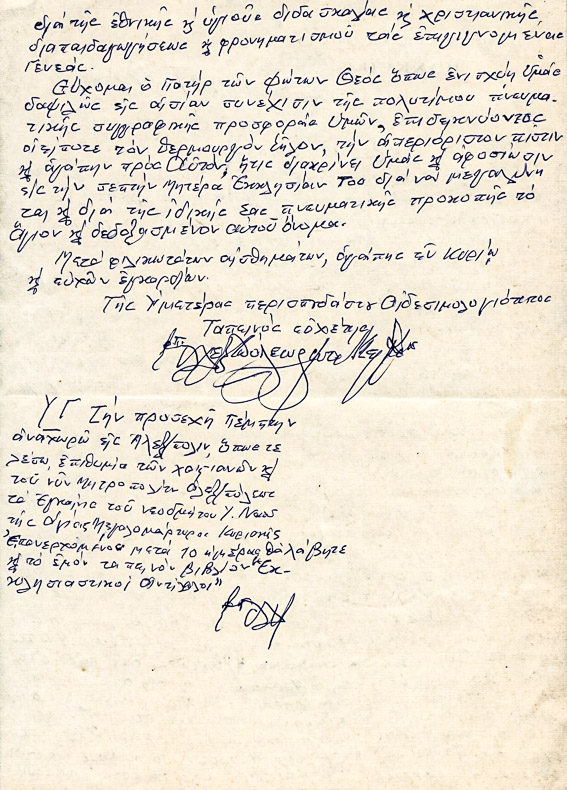 διά τῆς ἐθνικῆς ϗ ὑγιοῦς διδασκαλίας ϗ χριστιανικῆς
διαπαιδαγωγήσεως ϗ φρονηματισμοῦ τῆς ἐπιγιγνομένης
Γενεᾶς.
Εὔχομαι ὁ Πατήρ τῶν φώτων Θεός ὅπως ἐνισχύῃ Ὑμᾶς
δαψιλῶς εἰς αἰσίαν συνέχισιν τῆς πολυτίμου πνευμα-
τικῆς συγγραφικῆς προσφορᾶς Ὑμῶν, ἐπιδεικνύοντας
τόν θερμουργόν ζῆλον, τήν ἀπεριόριστον πίστιν
ϗ ἀγάπην πρός Αὐτόν, ἥτις διακρίνει Ὑμᾶς ϗ ἀφοσίωσιν
εἰς τήν σεπτήν Μητέρα Ἐκκλησίαν Του διά νά μεγαλύνη
ται ϗ διά τῆς ἰδικῆς σας πνευματικῆς προκοπῆς τό
Ἅγιον ϗ δεδοξασμένον αὐτοῦ ὄνομα.
Μετά φιλικωτάτων αἰσθημάτων, ἀγάπης ἐν Κυρίῳ
ϗ εὐχῶν ἐγκαρδίων.
Τῆς Ὑμετέρας περισπουδάστου Αἰδεσιμολογιότητος
Ταπεινός εὐχέτης
ΥΓ Τήν προσεχῆ Πέμπτην
ἀναχωρῶ εἰς Ἀλεξ/πολιν, ὅπως τε
λέσω, ἐπιθυμίᾳ τῶν χριστιανῶν ϗ
τοῦ νῦν Μητροπολίτου Ἀλεξ/πόλεως
τά Ἐγκαίνια τοῦ νεοδμήτου Ἱ. Ναοῦ
τῆς Ἁγίας Μεγαλομάρτυρος Κυριακῆς
Ἐπανερχόμενος μετά 10 ἡμέρας θά λάβητε
ϗ τό ἐμόν ταπεινόν βιβλίον "Ἐκ-
κλησιαστικοί Ἀντίλαλοι"